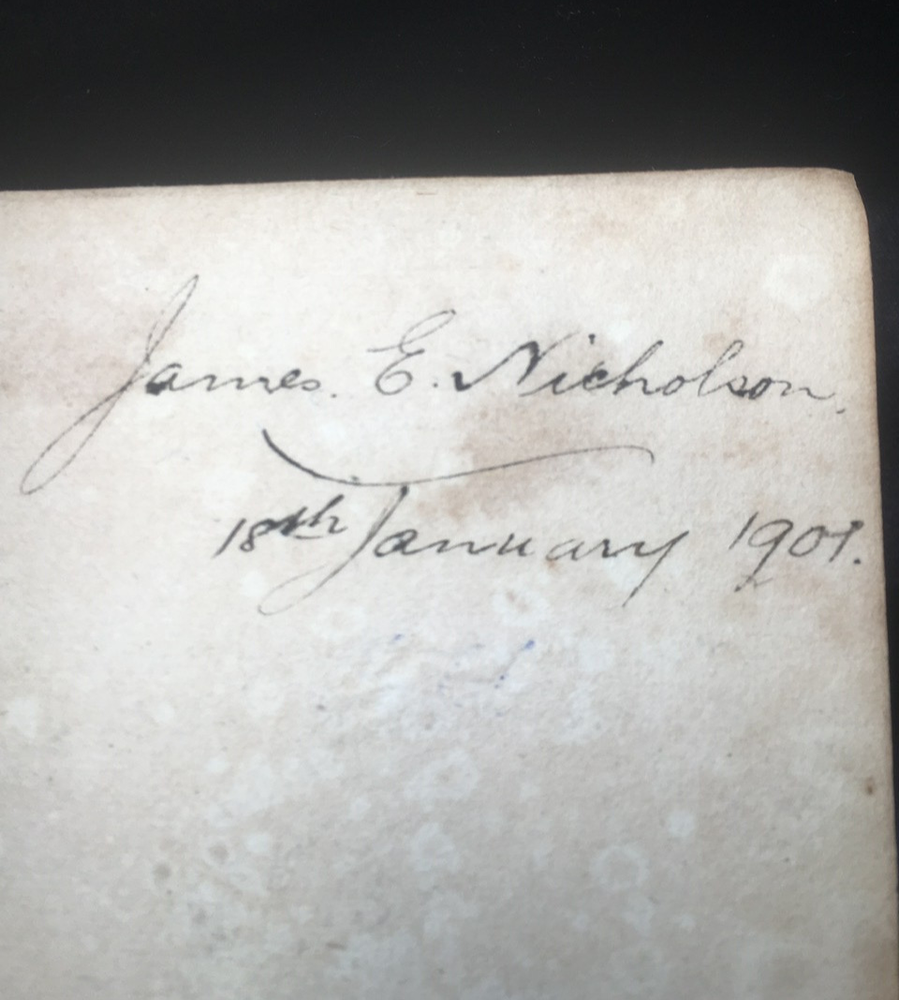 James. E. Nicholson.
18th January 1901.